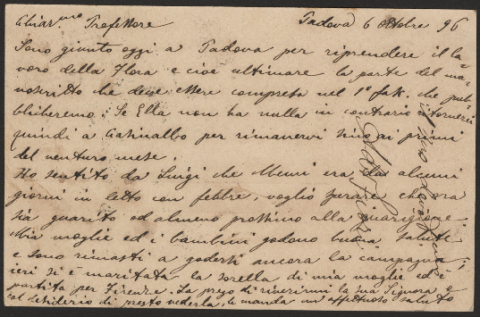 Chiar.mo Professore Padova 6 Ottobre 96
Sono giunto oggi a Padova per riprendere il la-
voro della Flora e cioè ultimare la parte del ma-
noscritto che deve essere compreso nel 1° fasc. che pub-
blicheremo. Se Ella non ha nulla in contrario ritornerei
quindi a Casinalbo per rimanervi sino ai primi
del venturo mese.
Ho sentito da Luigi che Memi era da alcuni
giorni in letto con febbre, voglio sperare che ora
sia guarito od almeno prossimo alla guarigione.
Mia moglie ed i bambini godono buona salute
e sono rimasti a godersi ancora la campagna;
ieri si è maritata la sorella di mia moglie ed è
partita per Firenze. La prego di riverirmi la sua Signora e
nel desiderio di presto vederla, le manda un affettuoso saluto